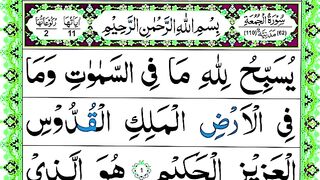 اٰيَاتُهَا 11 رُكُوْعَاتُهَا 2
بِسْمِ اللّٰهِ الرَّحْمٰنِ الرَّحِيْمِ
سُوْرَةُ الْجُمُعَةِ (62) مَدَنِيَّةٌ (110)
يُسَبِّحُ لِلّٰهِ مَا فِى السَّمٰوٰتِ وَمَا
فِى الْاَرْضِ الْمَلِكِ الْقُدُّوْسِ
الْعَزِيْزِ الْحَكِيْمِ ۝١ هُوَ الَّذِىْ